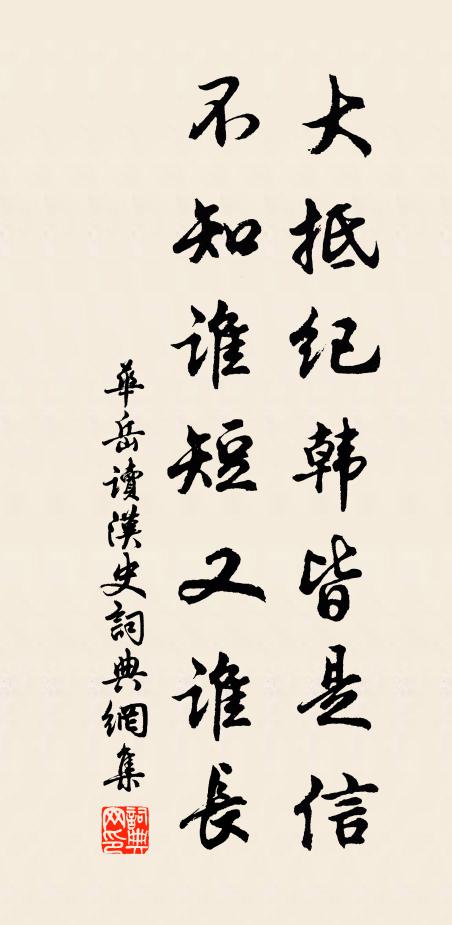 大抵纪韩皆是信
不知谁短又谁長
華岳讀漢史詞典網集
詞典网印